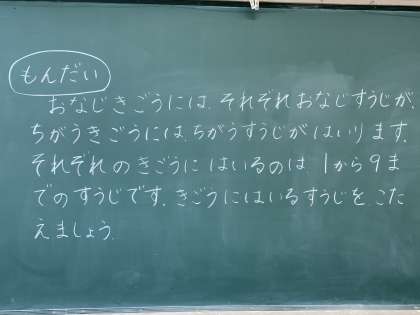 もんだい
おなじきごうには、それぞれおなじすうじが
ちがうきごうには、ちがうすうじがはいります。
それぞれのきごうにはいるのは、1から9ま
でのすうじです。きごうにはいるすうじを、こた
えましょう。